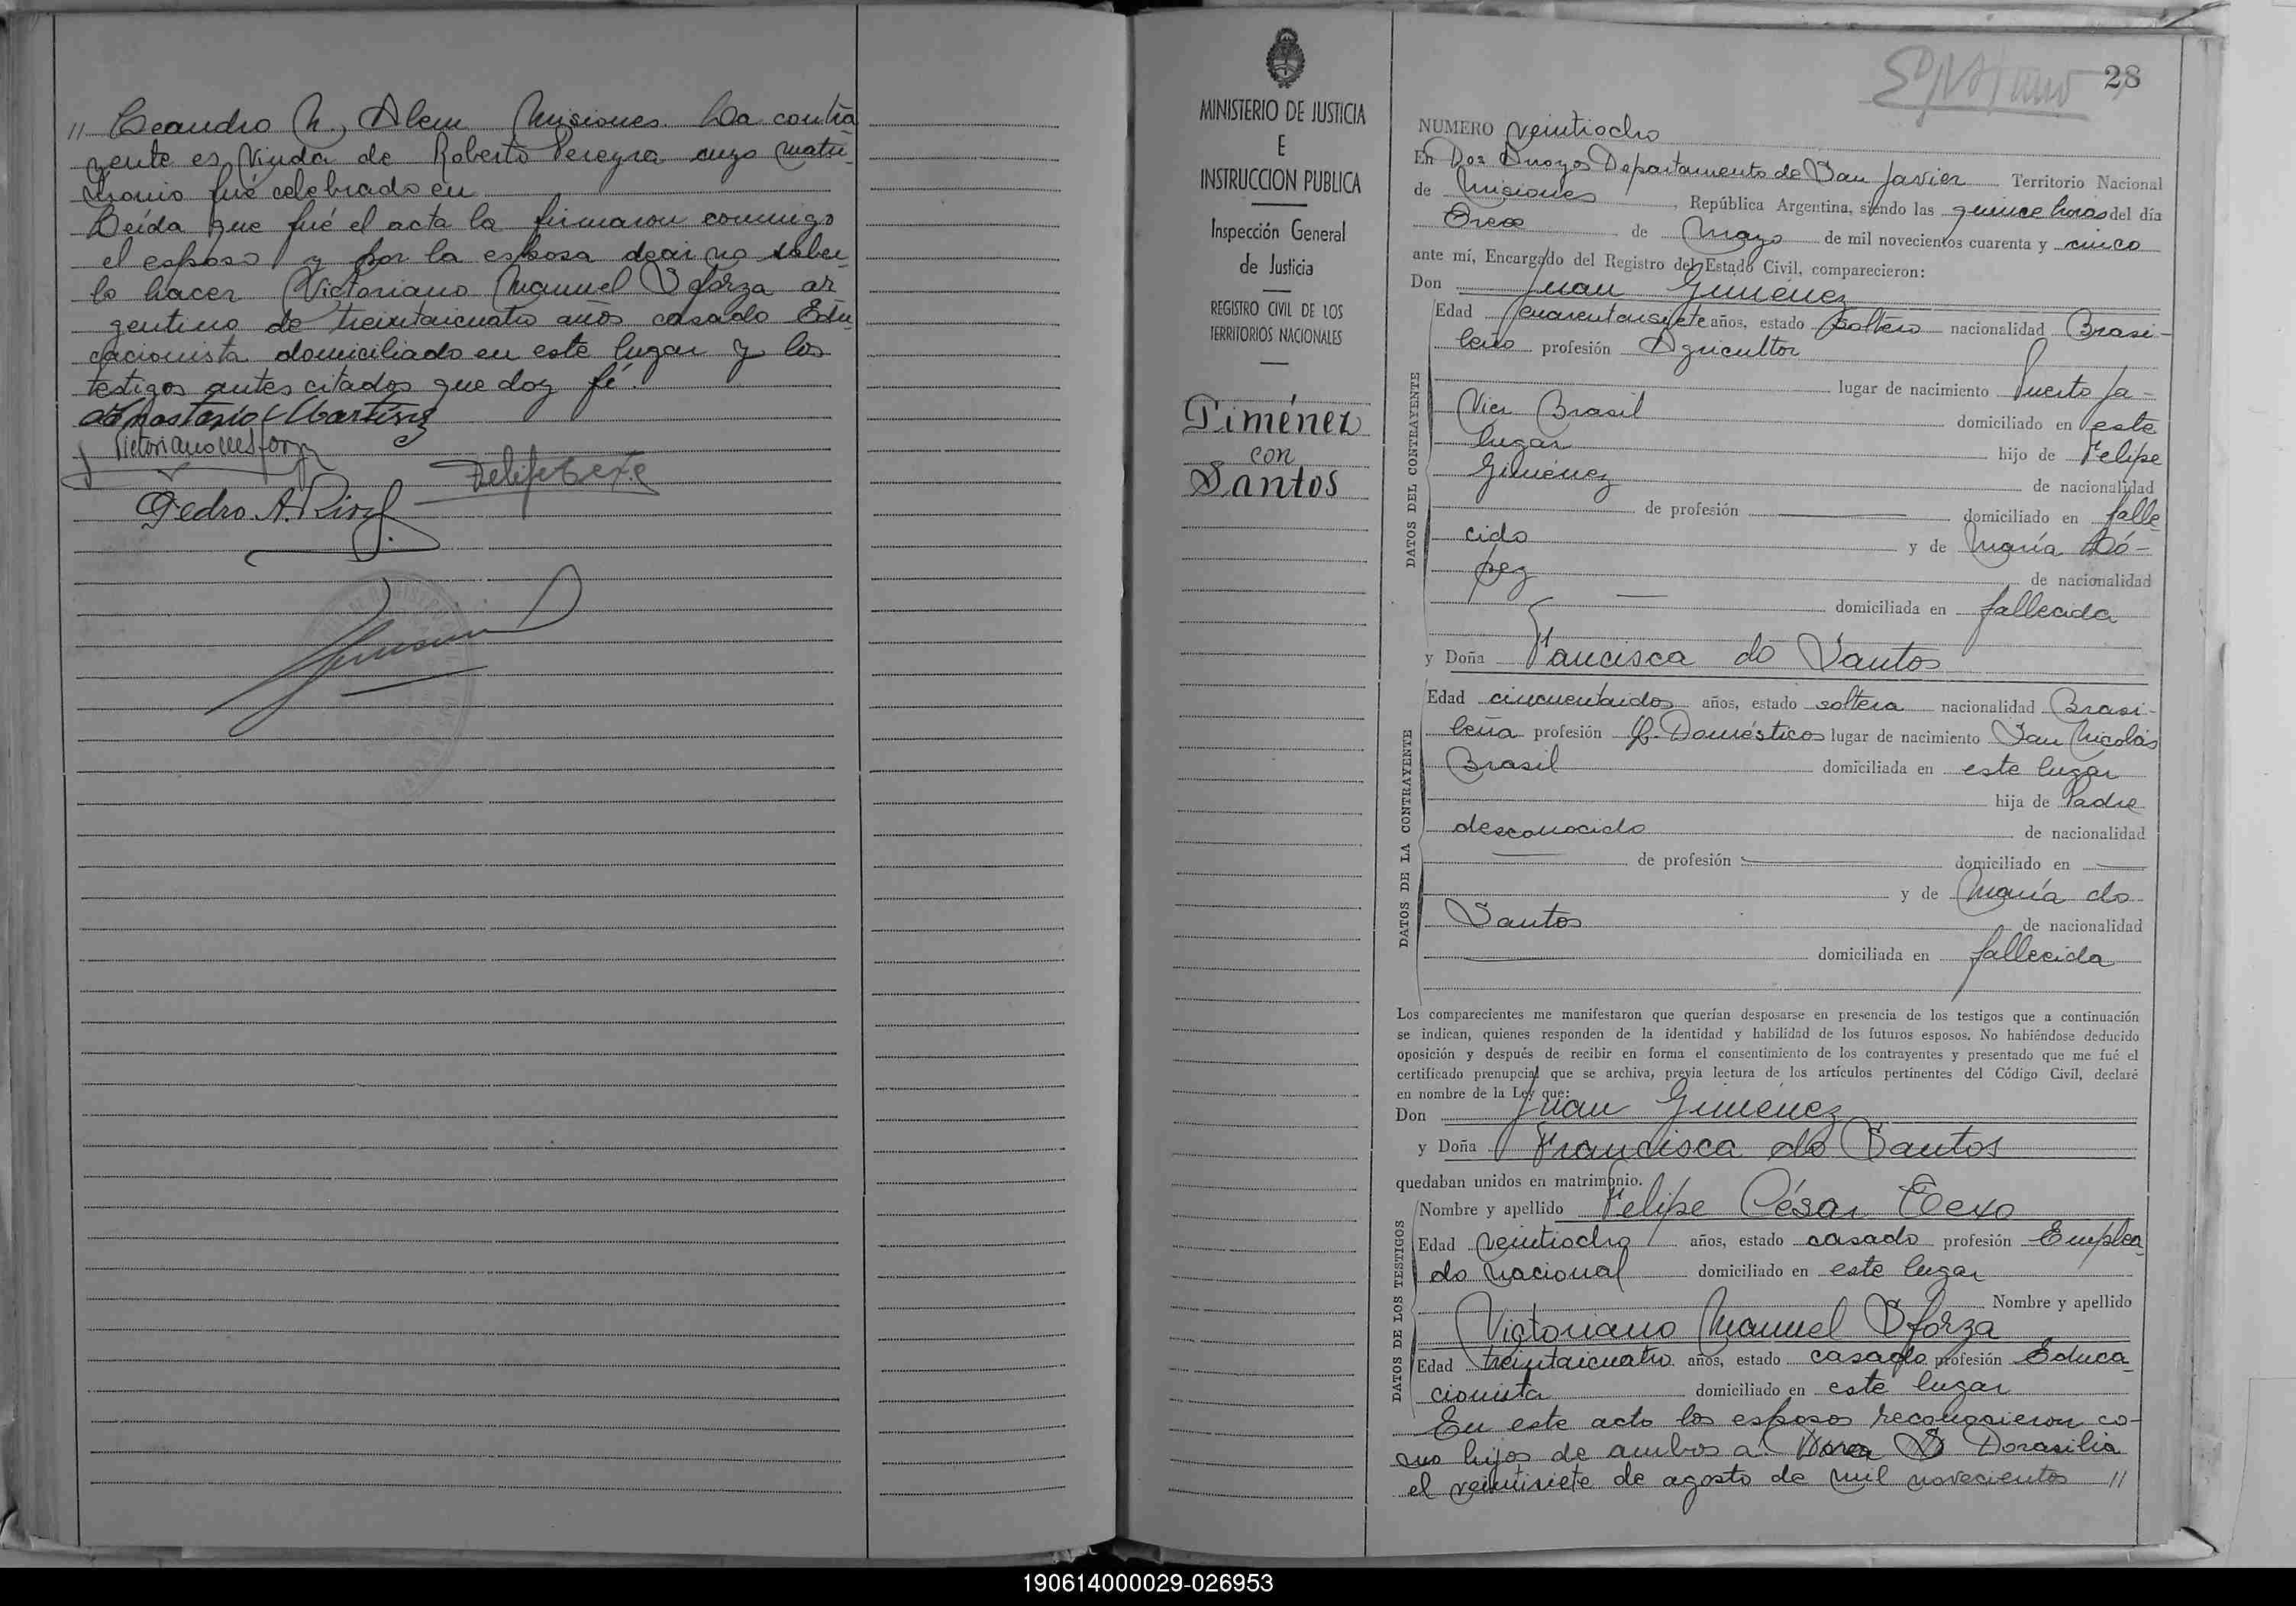 // Leandro N. Alem Misiones. La contra
yente es viuda de Roberto Pereyra cuyo matri-
monio fué celebrado en
Leída que fué el acta la firmaron conmigo
el esposo y por la esposa decir no saber
lo hacer Victoriano Manuel Sforza ar
gentino de treintaicuatro años casado Edu
cacionista domiciliado en este lugar y los
testigos antes citados que doy fé.
Anastasio Martinez
Victoriano M Sforza
Felipe C Texo
Pedro A.
MINISTERIO DE JUSTICIA
E
INSTRUCCION PUBLICA
Inspección General
de Justicia
REGISTRO CIVIL DE LOS
TERRITORIOS NACIONALES
Giménez
con
Santos
28
NUMERO veintiocho
En Dos Arroyos Departamento de San Javier Territorio Nacional
de Misiones, República Argentina, siendo las quince horas del día
Once de Mayo de mil novecientos cuarenta y cinco
ante mí, Encargado del Registro del Estado Civil, comparecieron:
Don Juan Giménez
DATOS DEL CONTRAYENTE
Edad cuarentaisiete años, estado soltero nacionalidad Brasi-
leño profesión Agricultor
lugar de nacimiento Puerto Ja-
vier Brasil domiciliado en este
lugar hijo de Felipe
Giménez de nacionalidad
de profesión domiciliado en falle
cido y de María Ló-
pez de nacionalidad
domiciliada en fallecida
y Doña Francisca do Santos
DATOS DE LA CONTRAYENTE
Edad cincuentaidos años, estado soltera nacionalidad Brasi-
leña profesión Q. Domésticos lugar de nacimiento San Nicolás
Brasil domiciliada en este lugar
hija de Padre
desconocido de nacionalidad
de profesión domiciliado en
y de María do
Santos de nacionalidad
domiciliada en fallecida
Los comparecientes me manifestaron que querían desposarse en presencia de los testigos que a continuación
se indican, quienes responden de la identidad y habilidad de los futuros esposos. No habiéndose deducido
oposición y después de recibir en forma el consentimiento de los contrayentes y presentado que me fué el
certificado prenupcial que se archiva, previa lectura de los artículos pertinentes del Código Civil, declaré
en nombre de la Ley que:
Don Juan Giménez
y Doña Francisca do Santos
quedaban unidos en matrimonio.
DATOS DE LOS TESTIGOS
Nombre y apellido Felipe César Texo
Edad veintiocho años, estado casado profesión Emplea
do Nacional domiciliado en este lugar
Nombre y apellido
Victoriano Manuel Sforza
Edad treintaicuatro años, estado casado profesión Educa
cionista domiciliado en este lugar
En este acto los esposos reconocieron co-
mo hijos de ambos a: Dorasilia
el veintisiete de agosto de mil novecientos //
190614000029-026953